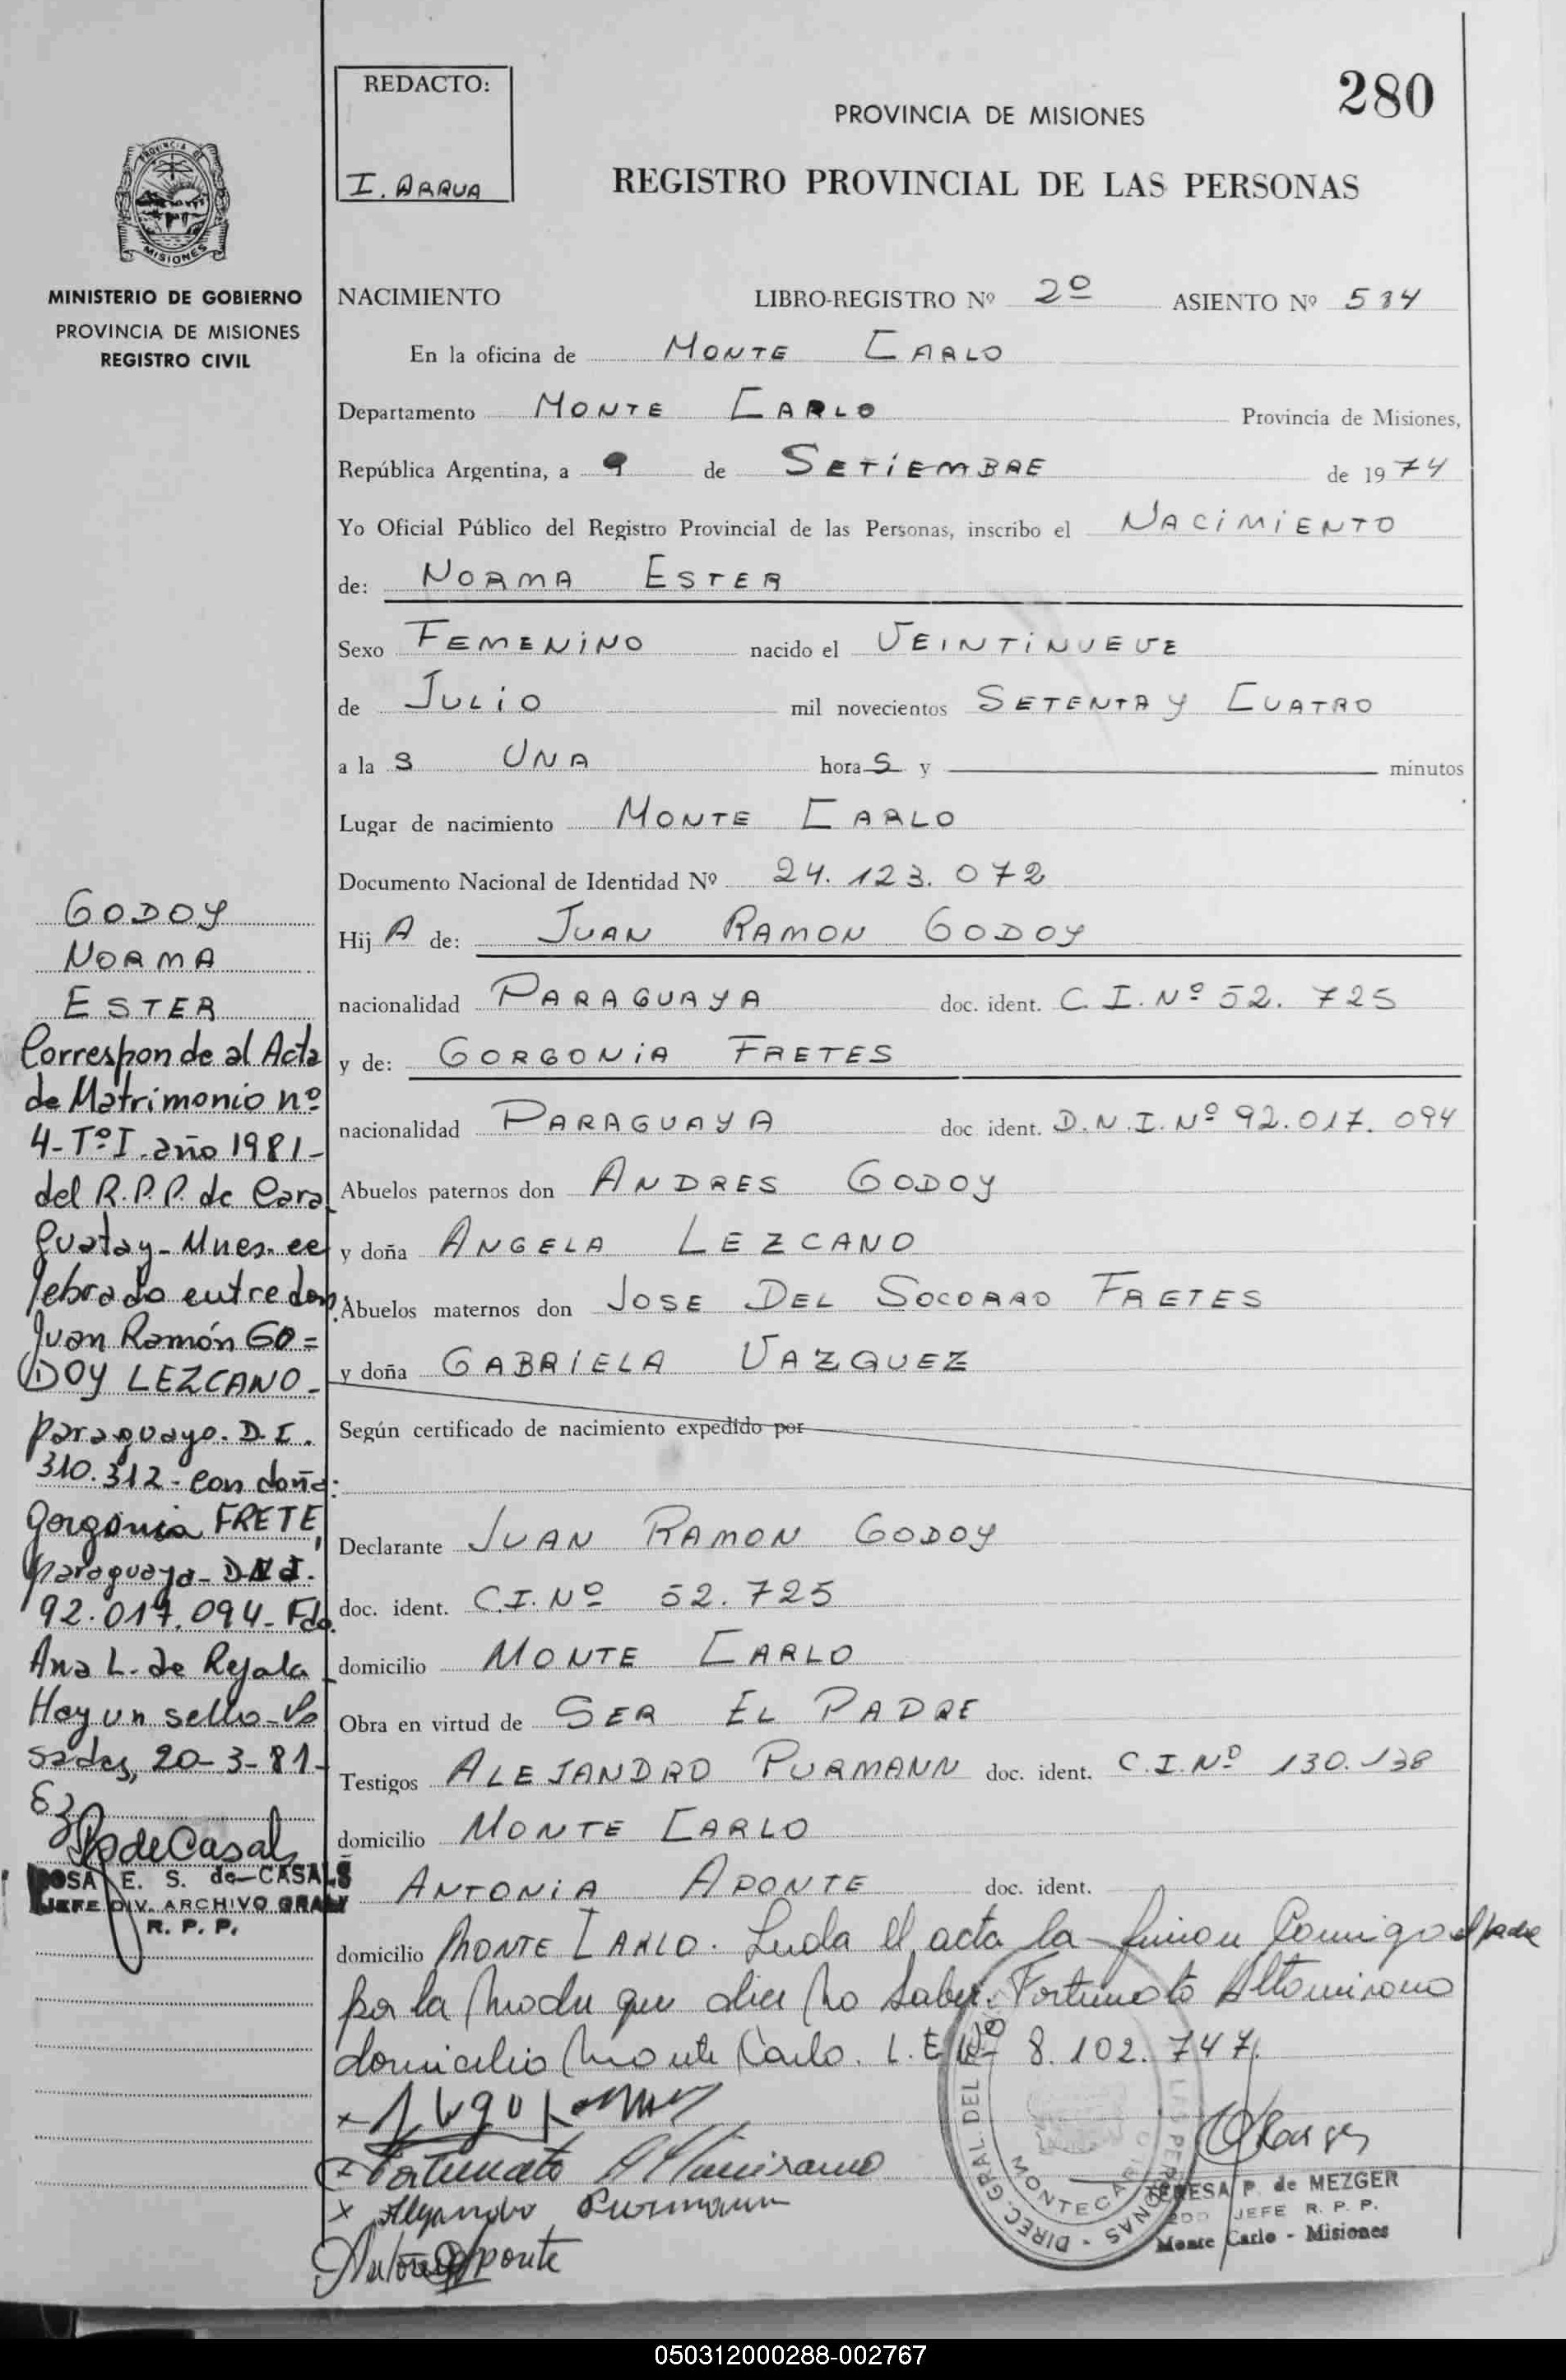 280
REDACTO:
I. ARRUA
PROVINCIA DE MISIONES
REGISTRO PROVINCIAL DE LAS PERSONAS
PROVINCIA DE
MISIONES
MINISTERIO DE GOBIERNO
PROVINCIA DE MISIONES
REGISTRO CIVIL
NACIMIENTO LIBRO-REGISTRO Nº 2º ASIENTO Nº 534
En la oficina de MONTE CARLO
Departamento MONTE CARLO Provincia de Misiones,
República Argentina, a 9 de SETIEMBRE de 1974
Yo Oficial Público del Registro Provincial de las Personas, inscribo el NACIMIENTO
de: NORMA ESTER
Sexo FEMENINO nacido el VEINTINUEVE
de JULIO mil novecientos SETENTA Y CUATRO
a la S UNA horaS y minutos
Lugar de nacimiento MONTE CARLO
Documento Nacional de Identidad Nº 24.123.072
Hij A de: JUAN RAMON GODOY
nacionalidad PARAGUAYA doc. ident. C.I. Nº 52.725
y de: GORGONIA FRETES
nacionalidad PARAGUAYA doc ident. D.N.I. Nº 92.017.094
Abuelos paternos don ANDRES GODOY
y doña ANGELA LEZCANO
Abuelos maternos don JOSE DEL SOCORRO FRETES
y doña GABRIELA VAZQUEZ
Según certificado de nacimiento expedido por
Declarante JUAN RAMON GODOY
doc. ident. C.I. Nº 52.725
domicilio MONTE CARLO
Obra en virtud de SER EL PADRE
Testigos ALEJANDRO PURMANN doc. ident. C.I. Nº 130.138
domicilio MONTE CARLO
ANTONIA APONTE doc. ident.
domicilio MONTE CARLO. Leida el acta la firman Conmigo el padre
por la madre que dice no saber. Fortunato Altamirano
domicilio Monte Carlo. L.E. Nº 8.102.747.
x Fortunato Altamirano
x Alejandro Purmann
Antonia Aponte
DIREC. GRAL. DEL
MONTECARLO
TERESA P. de MEZGER
JEFE R. P. P.
Monte Carlo - Misiones
GODOY
NORMA
ESTER
Corresponde al Acta
de Matrimonio nº
4- Tº I. año 1981-
del R.P.P. de Cara
guatay- Mnes. ce
lebrado entre don
Juan Ramón GO=
DOY LEZCANO-
paraguayo. D.I.
310.312- con doña:
Gorgonia FRETE,
paraguaya- DNI.
92.017.094- Fdo.
Ana L. de Rejala
Hay un sello- Po
sadas, 20-3-81-
R de Casals
ROSA E. S. de CASALS
JEFE DIV. ARCHIVO GRAL
R. P. P.
050312000288-002767